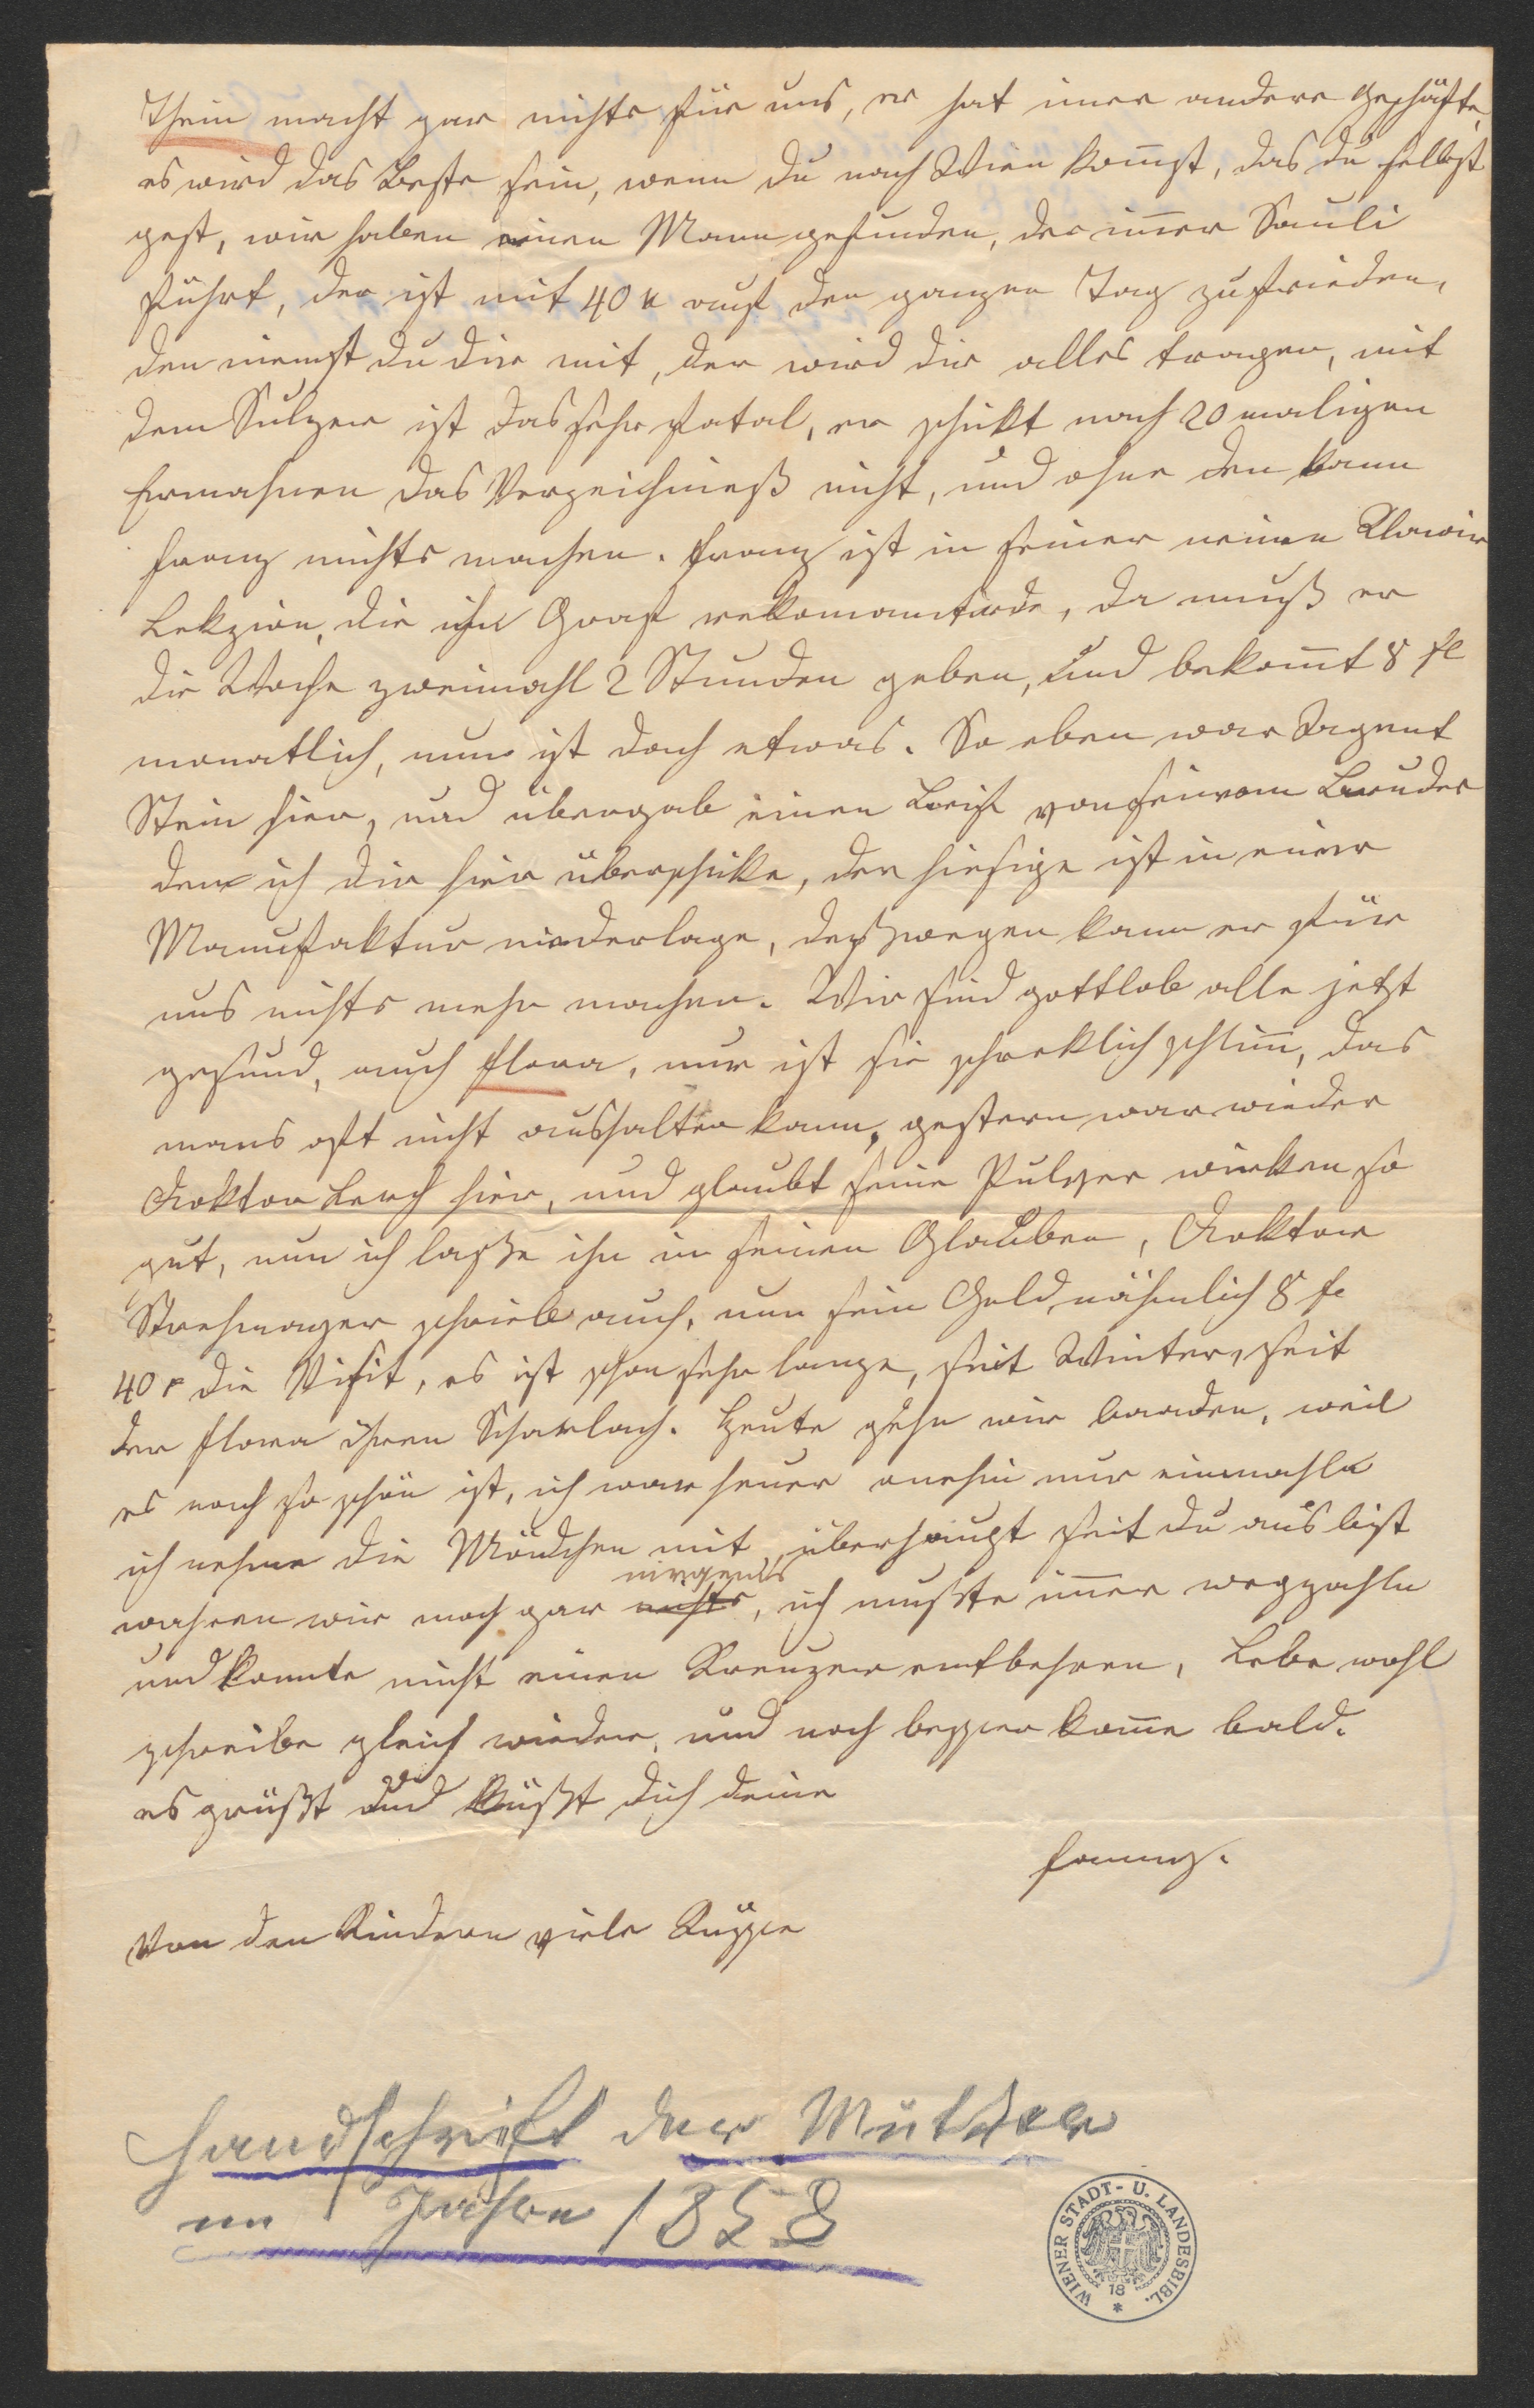 Thein macht gar nichts für uns, er hat imer andere Geschäfte,
es wird das Beste sein, wenn du nach Wien kom̄st, das du selbst
gest, wir haben einen Mann gefunden, der im̄er Sauli
führt, der ist mit 40 x auf den ganzen Tag zufrieden,
den niemst du dir mit, der wird dir alles tragen, mit
dem Sulzer ist das sehr fatal, er schikt nach 20 maligen
Ermahnen das Verzeichneß nicht, und ohne den kann
Franz nichts machen. Franz ist in seiner neuen Klavir
Lekzion, die ihn Graf rekomandirde, da muß er
die Woche zweimahl 2 Stunden geben, und bekom̄t 8 fl
monatlich, nun ist doch etwas. So eben war Agent
Stein hier, und übergab einen Brif von seinem Bruder
den ich dir hier überschike, der hiesige ist in einer
Manufaktur niederlage, deßwegen kann er für
uns nichts mehr machen. Wir sind gottlob alle jetzt
gesund, auch Flora, nur ist sie schreklich schlim̄, das
mans oft nicht aushalten kann, gestern war wieder
Doktor Lerch hier, und glaubt seine Pulver wirken so
gut, nun ich laße ihn in seinen Glauben, Doktor
schrieb auch, um sein Geld nähmlich 8 fl
40 x die Visit, es ist schon sehr lange, seit Winter, seit
der Flora ihren Scharlach. Heute gehn wir baaden, weil
es noch so schön ist, ich war heuer onehin nur einmahl
ich nehme die Mädchen mit, überhaupt seit du aus bist
wahren wir noch gar nirgends, ich mußte im̄er wegzahln
und konnte nicht einen Kreuzer entbehren, Lebe wohl
schreibe gleich wieder, und noch besser kom̄e bald.
es grüßt und küßt dich deine
Fanny.
Von den Kindern viele Küsse
Handschrift der Mutter
im Jahre 1858
WIENER STADT- U. LANDESBIBL.
18